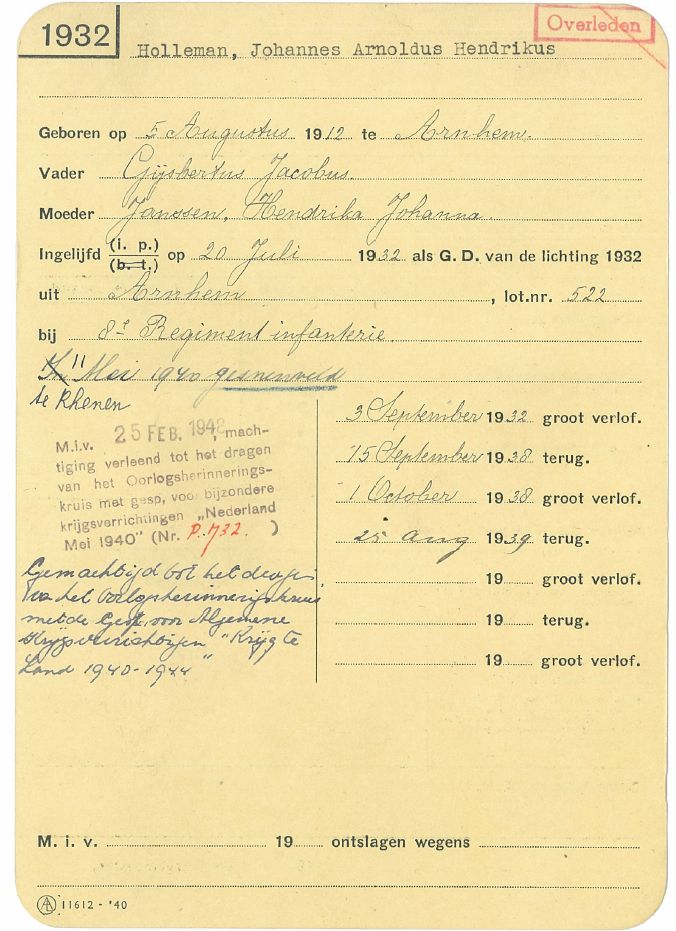 1932
Overleden
Holleman, Johannes Arnoldus Hendrikus
Geboren op 5 Augustus 1912 te Arnhem.
Vader Gijsbertus Jacobus.
Moeder Janssen, Hendrika Johanna.
Ingelijfd (i. p.) (b. t.) op 20 Juli 1932 als G. D. van de lichting 1932
uit Arnhem, lot.nr. 522
bij 8e Regiment infanterie.
11 Mei 1940 gesneuveld
te Rhenen
3 September 1932 groot verlof.
15 September 1938 terug.
1 October 1938 groot verlof.
25 aug 1939 terug.
19 groot verlof.
19 terug.
19 groot verlof.
M.i.v. 25 FEB. 1948, mach-
tiging verleend tot het dragen
van het Oorlogsherinnerings-
kruis met gesp, voor bijzondere
krijgsverrichtingen „Nederland
Mei 1940" (Nr. P.1732. )
Gemachtigd tot het dragen
van het oorlogsherinneringskruis
met de Gesp, voor Algemene
Krijgsverrichtingen "Krijg te
Land 1940-1944"
M. i. v. 19 ontslagen wegens
11612 - '40